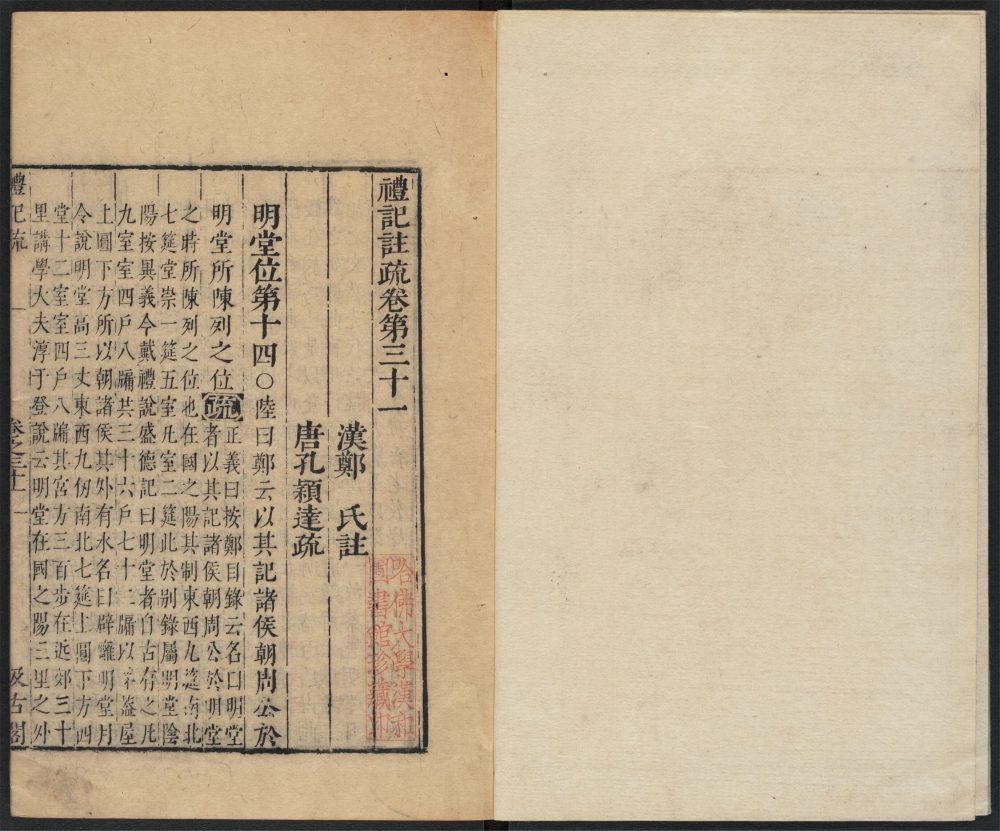 禮記註疏卷第三十一
漢鄭氏註
唐孔穎達疏
明堂位第十四○陸曰鄭云以其記諸侯朝周公於
明堂所陳列之位疏正義曰按鄭目錄云名曰明堂
者以其記諸侯朝周公於明堂
之時所陳列之位也在國之陽其制東西九筵南北
七筵堂崇一筵五室凡室二筵此於別錄屬明堂陰
陽按異義今戴禮說盛德記曰明堂者自古有之凡
九室室四戶八牖共三十六戶七十二牖以茅蓋屋
上圓下方所以朝諸侯其外有水名曰辟廱明堂月
令說明堂高三丈東西九仞南北七筵上圓下方四
堂十二室室四戶八牖其宮方三百步在近郊三十
里講學大夫淳于登說云明堂在國之陽三里之外
禮記疏
卷之三十一
一
汲古閣
哈佛大學漢和
圖書館珍藏印